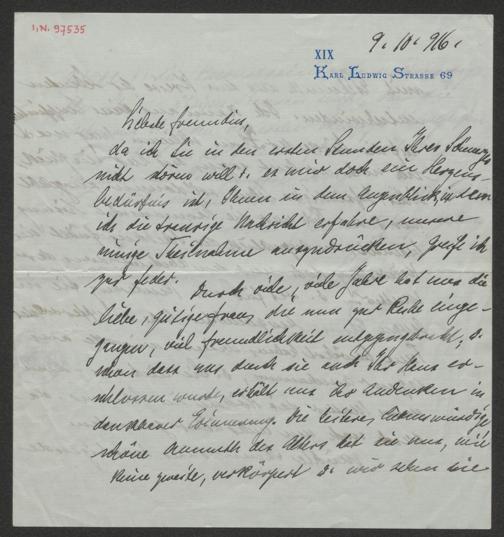 I.N. 97535
9. 10. 916.
XIX
KARL LUDWIG STRASSE 69
Liebste Freundin,
da ich Sie in den ersten Stunden Ihres Schmerzes
nicht stören will u. es mir doch ein Herzens-
bedürfnis ist, Ihnen in dem Augenblick, in dem
ich die traurige Nachricht erfahre, unsere
innige Theilnahme auszudrücken, greife ich
zur Feder.
Durch viele, viele Jahre hat uns die
liebe, gütige Frau, die nun zur Ruhe einge-
gangen, viel Freundlichkeit entgegengebracht, u.
schon dass uns durch sie auch Ihr Haus er-
schlossen wurde, erhält uns ihr Andenken in
dankbarer Erinnerung. Die heitere, liebenswürdige
schöne Anmuth des Alters hat sie uns, wie
keine zweite, verkörpert u. wir sehen sie